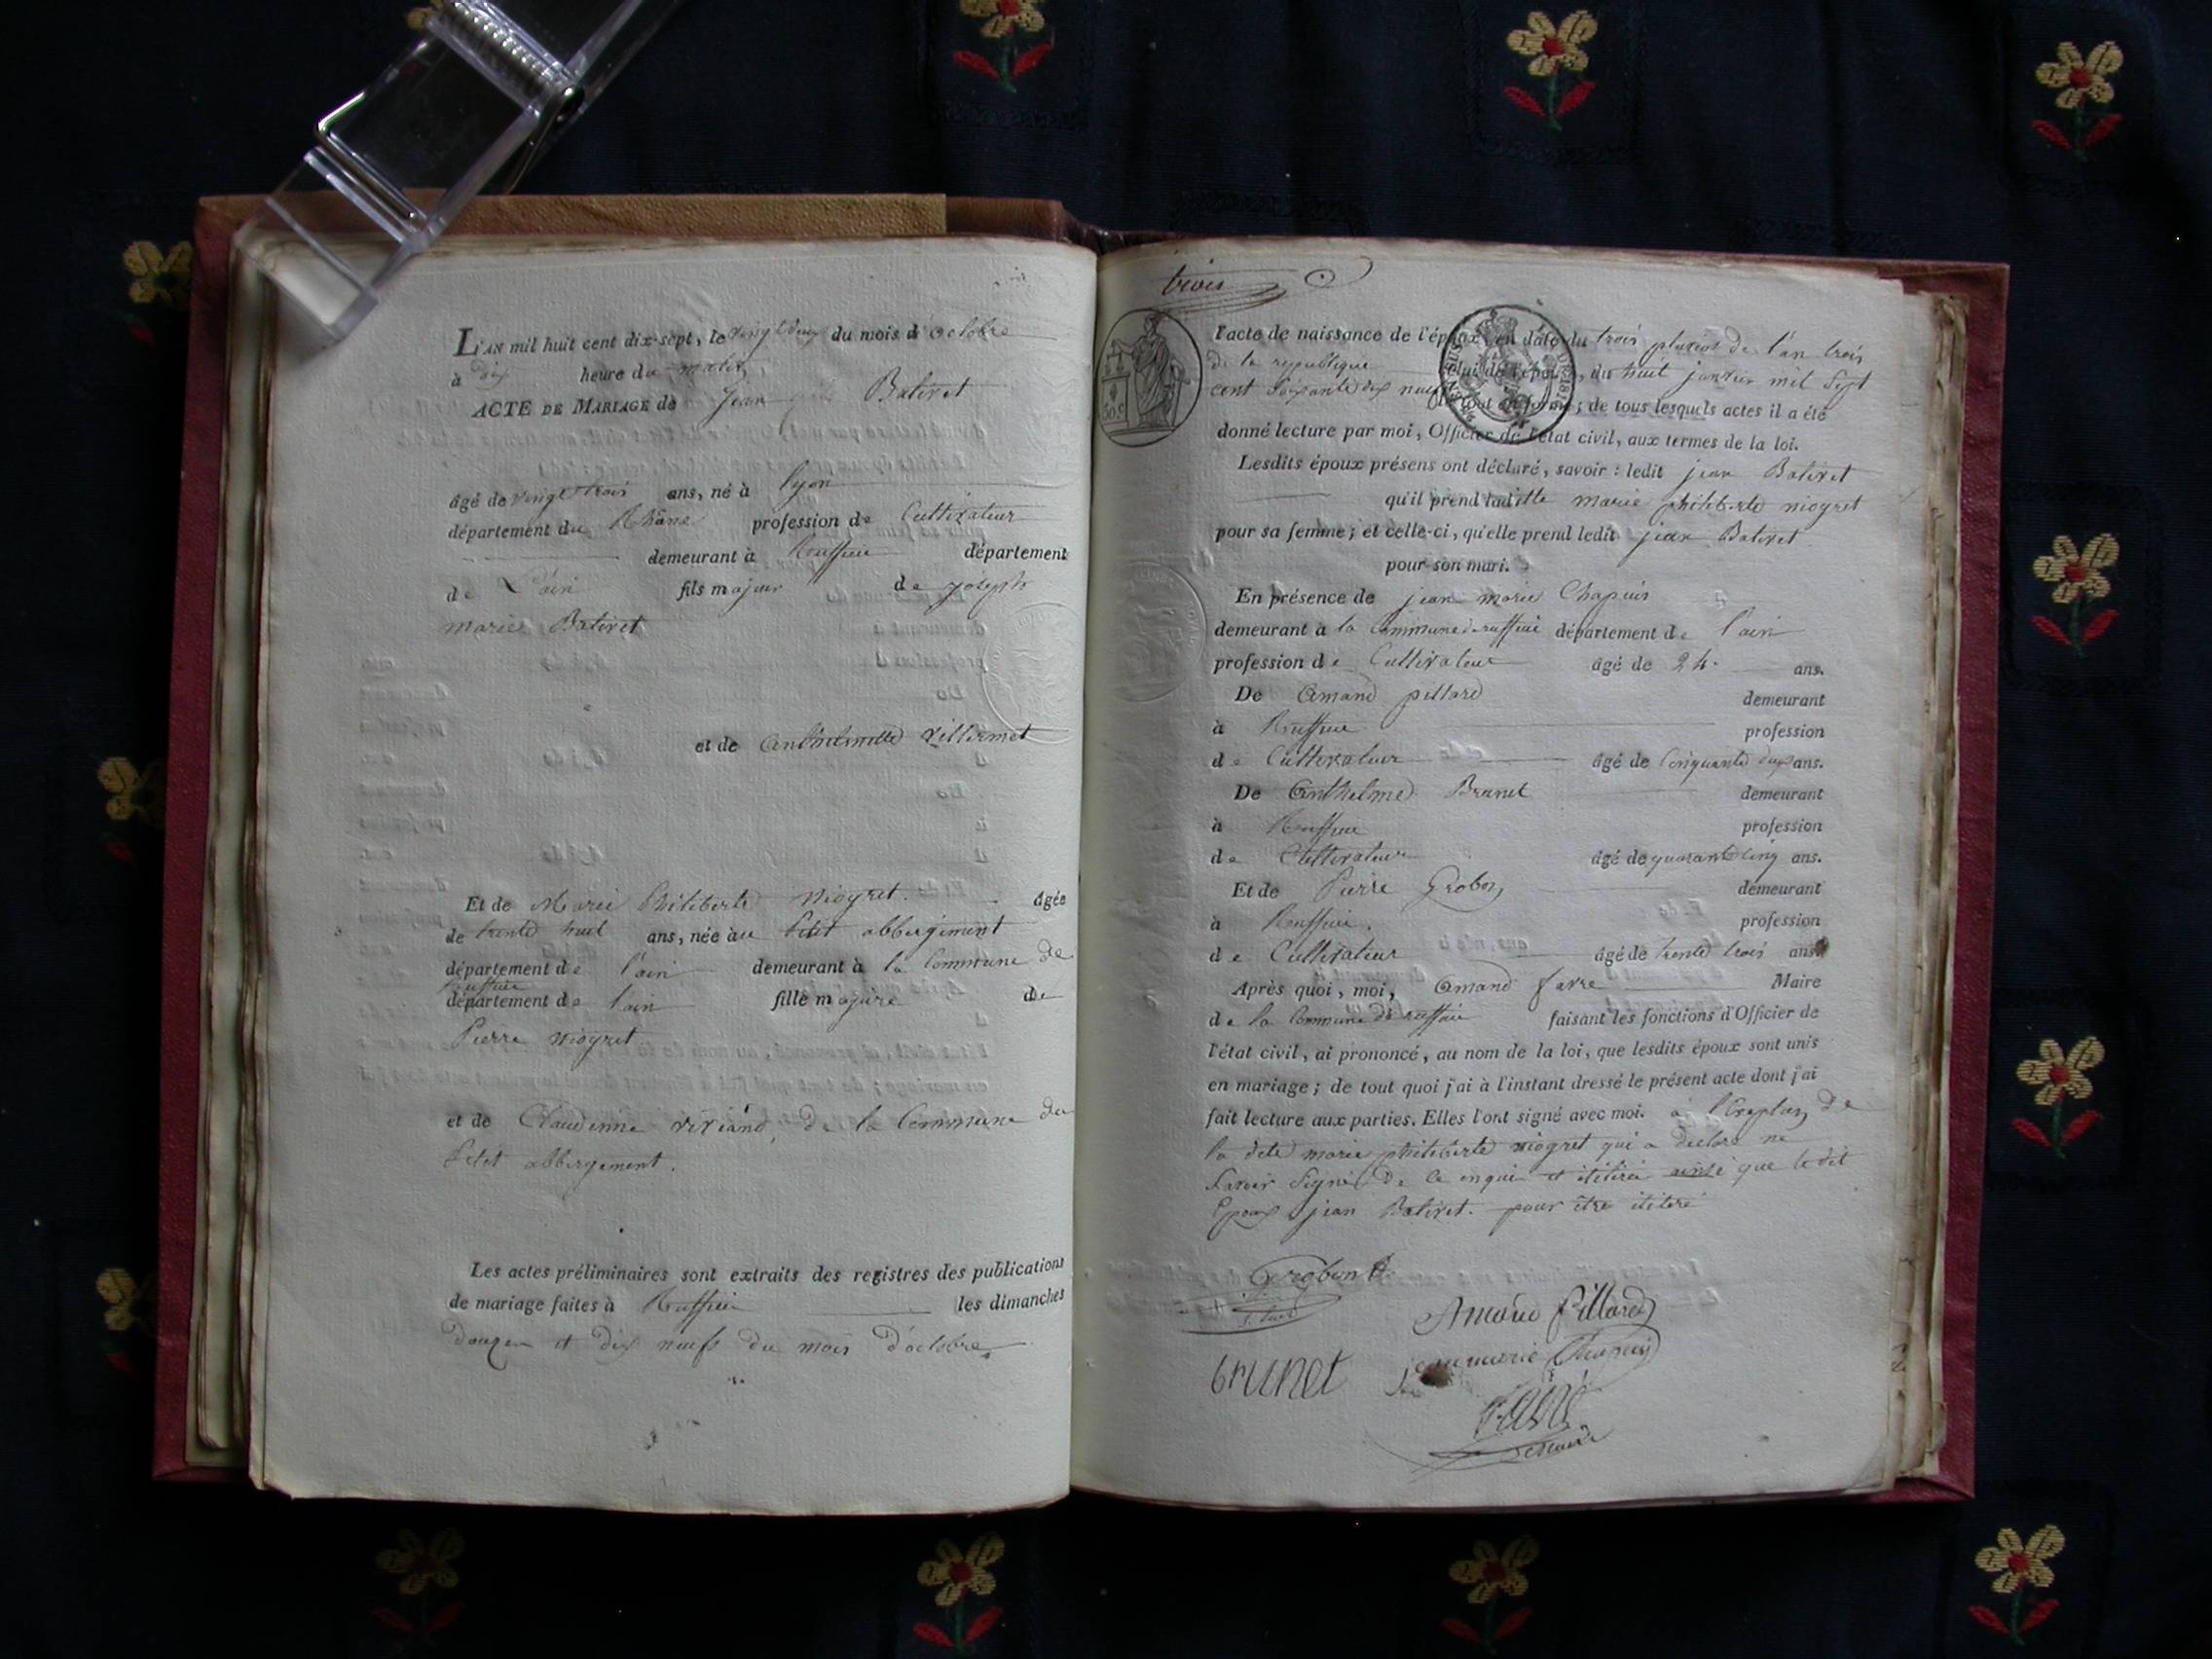 L'AN mil huit cent dix-sept, le vingt deux du mois d'octobre
à dix heure du matin,
ACTE DE MARIAGE de Jean Bativet
âgé de vingt trois ans, né à lyon
département du Rhône profession de Cultivateur
demeurant à Ruffieu département
de L'ain fils majeur de joseph
marie Bativet
et de Anthelmette
Et de Marie Philiberte niogret. âgée
de trente huit ans, née au petit abbergement
département de l'ain demeurant à la Commune de
Ruffieu
département de l'ain fille majure de
Pierre niogret
et de Claudinne viviand, de la Commune du
petit abbergement.
Les actes préliminaires sont extraits des registres des publications
de mariage faites à Ruffieu les dimanches
douze et dix neufs du mois d'octobre
trois
50 c.
l'acte de naissance de l'époux en date du trois pluviose de l'an trois
de la republique celui de l'épouse, du huit janvier mil sept
cent soixante dix neuf
le tout en forme; de tous lesquels actes il a été
donné lecture par moi, Officier de l'état civil, aux termes de la loi.
Lesdits époux présens ont déclaré, savoir: ledit jean Bativet
qu'il prend ladite marie philiberte niogret
pour sa femme; et celle-ci, qu'elle prend ledit jean Bativet
pour son mari.
En présence de jean marie Chapuis
demeurant à la Commune de ruffieu département de l'ain
profession de Cultivateur âgé de 24. ans.
De Amand pillard demeurant
à Ruffieu profession
de Cultivateur âgé de cinquante deux ans.
De Anthelme Brunet demeurant
à Ruffieu profession
de Cultivateur âgé de quarante cinq ans.
Et de Pierre Grobon demeurant
à Ruffieu. profession
de Cultivateur âgé de trente trois ans.
Après quoi, moi, Amand favre Maire
de la Commune de ruffieu faisant les fonctions d'Officier de
l'état civil, ai prononcé, au nom de la loi, que lesdits époux sont unis
en mariage; de tout quoi j'ai à l'instant dressé le présent acte dont j'ai
fait lecture aux parties. Elles l'ont signé avec moi. à de
la dite marie philiberte niogret qui a declaré ne
savoir signé de ce enquis et ainsi que le dit
Epoux jean Bativet. pour être
Grobon
Amand Pillard
brunet
jean marie Chapuis
favre